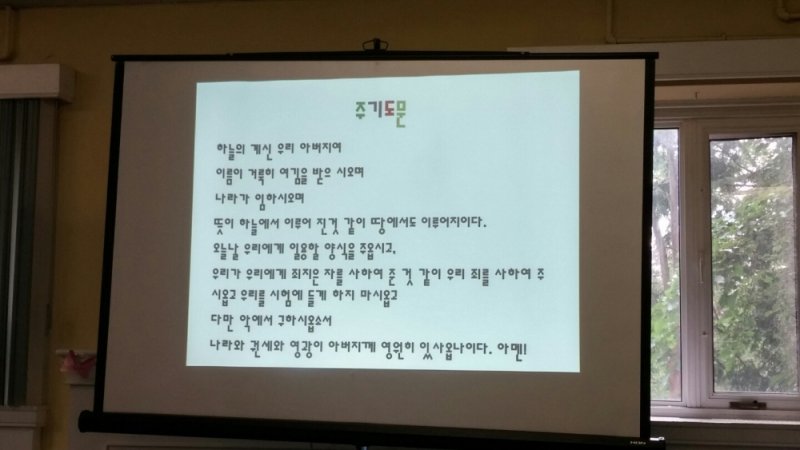 주기도문
하늘의 계신 우리 아버지여
이름이 거룩히 여김을 받으 시오며
나라가 임하시오며
뜻이 하늘에서 이루어 진것 같이 땅에서도 이루어지이다.
오늘날 우리에게 일용할 양식을 주옵시고,
우리가 우리에게 죄지은 자를 사하여 준 것 같이 우리 죄를 사하여 주
시옵고 우리를 시험에 들게 하지 마시옵고
다만 악에서 구하시옵소서
나라와 권세와 영광이 아버지께 영원히 있사옵나이다. 아멘!